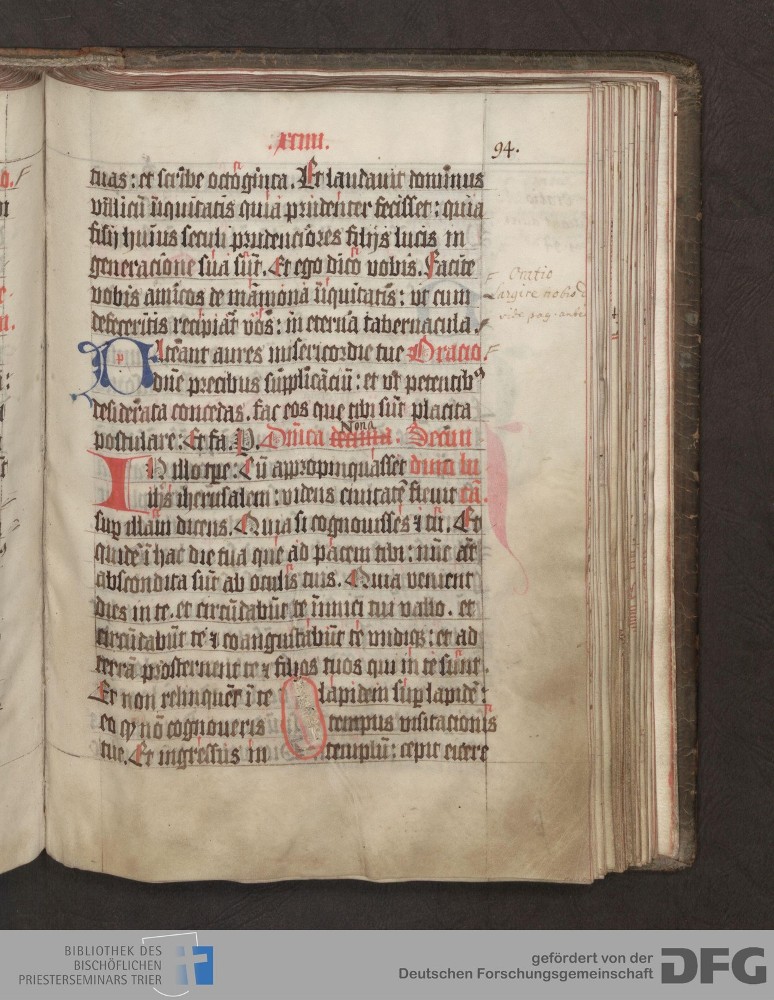 .xciiii.
94.
tuas: et scribe octoginta. Et laudauit dominus
villicū iniquitatis quia prudenter fecisset: quia
filij huius seculi prudenciores filijs lucis in
generacione sua sūt. Et ego dico vobis. facite
vobis amicos de mamona iniquitatis: vt cum
defeceritis recipiāt vos: in eterna tabernacula.
Pateant aures misericordie tue Oracio.
dn̄e precibus supplicāciū: et vt petentibꝰ
desiderata concedas. fac eos que tibi sūt placita
postulare: Et fa. P. Dn̄ica Nona decima. Secun
IN illo tp̄r: Cū appropinquasset dum lu
ihs iherusalem: videns ciuitatē fleuit cā.
sup illam dicens. Quia si cognouisses ⁊ tū. Et
quidē ī hac die tua que ad pacem tibi: nūc āt
abscondita sūt ab oculis tuis. Quia venient
dies in te. et circūdabūt te inimici tui vallo. et
circūdabūt te ⁊ coangustabūt te vndiqꝫ: et ad
terrā prosternent te ⁊ filios tuos qui in te sunt.
Et non relinquēt ī te lapidem sup lapidē:
eo qꝫ nō cognoueris tempus visitacionis
tue. Et ingressus in templū: cepit eicere
Oratio
Largire nobis
vide pag.
BIBLIOTHEK DES
BISCHÖFLICHEN
PRIESTERSEMINARS TRIER
gefördert von der
Deutschen Forschungsgemeinschaft
DFG